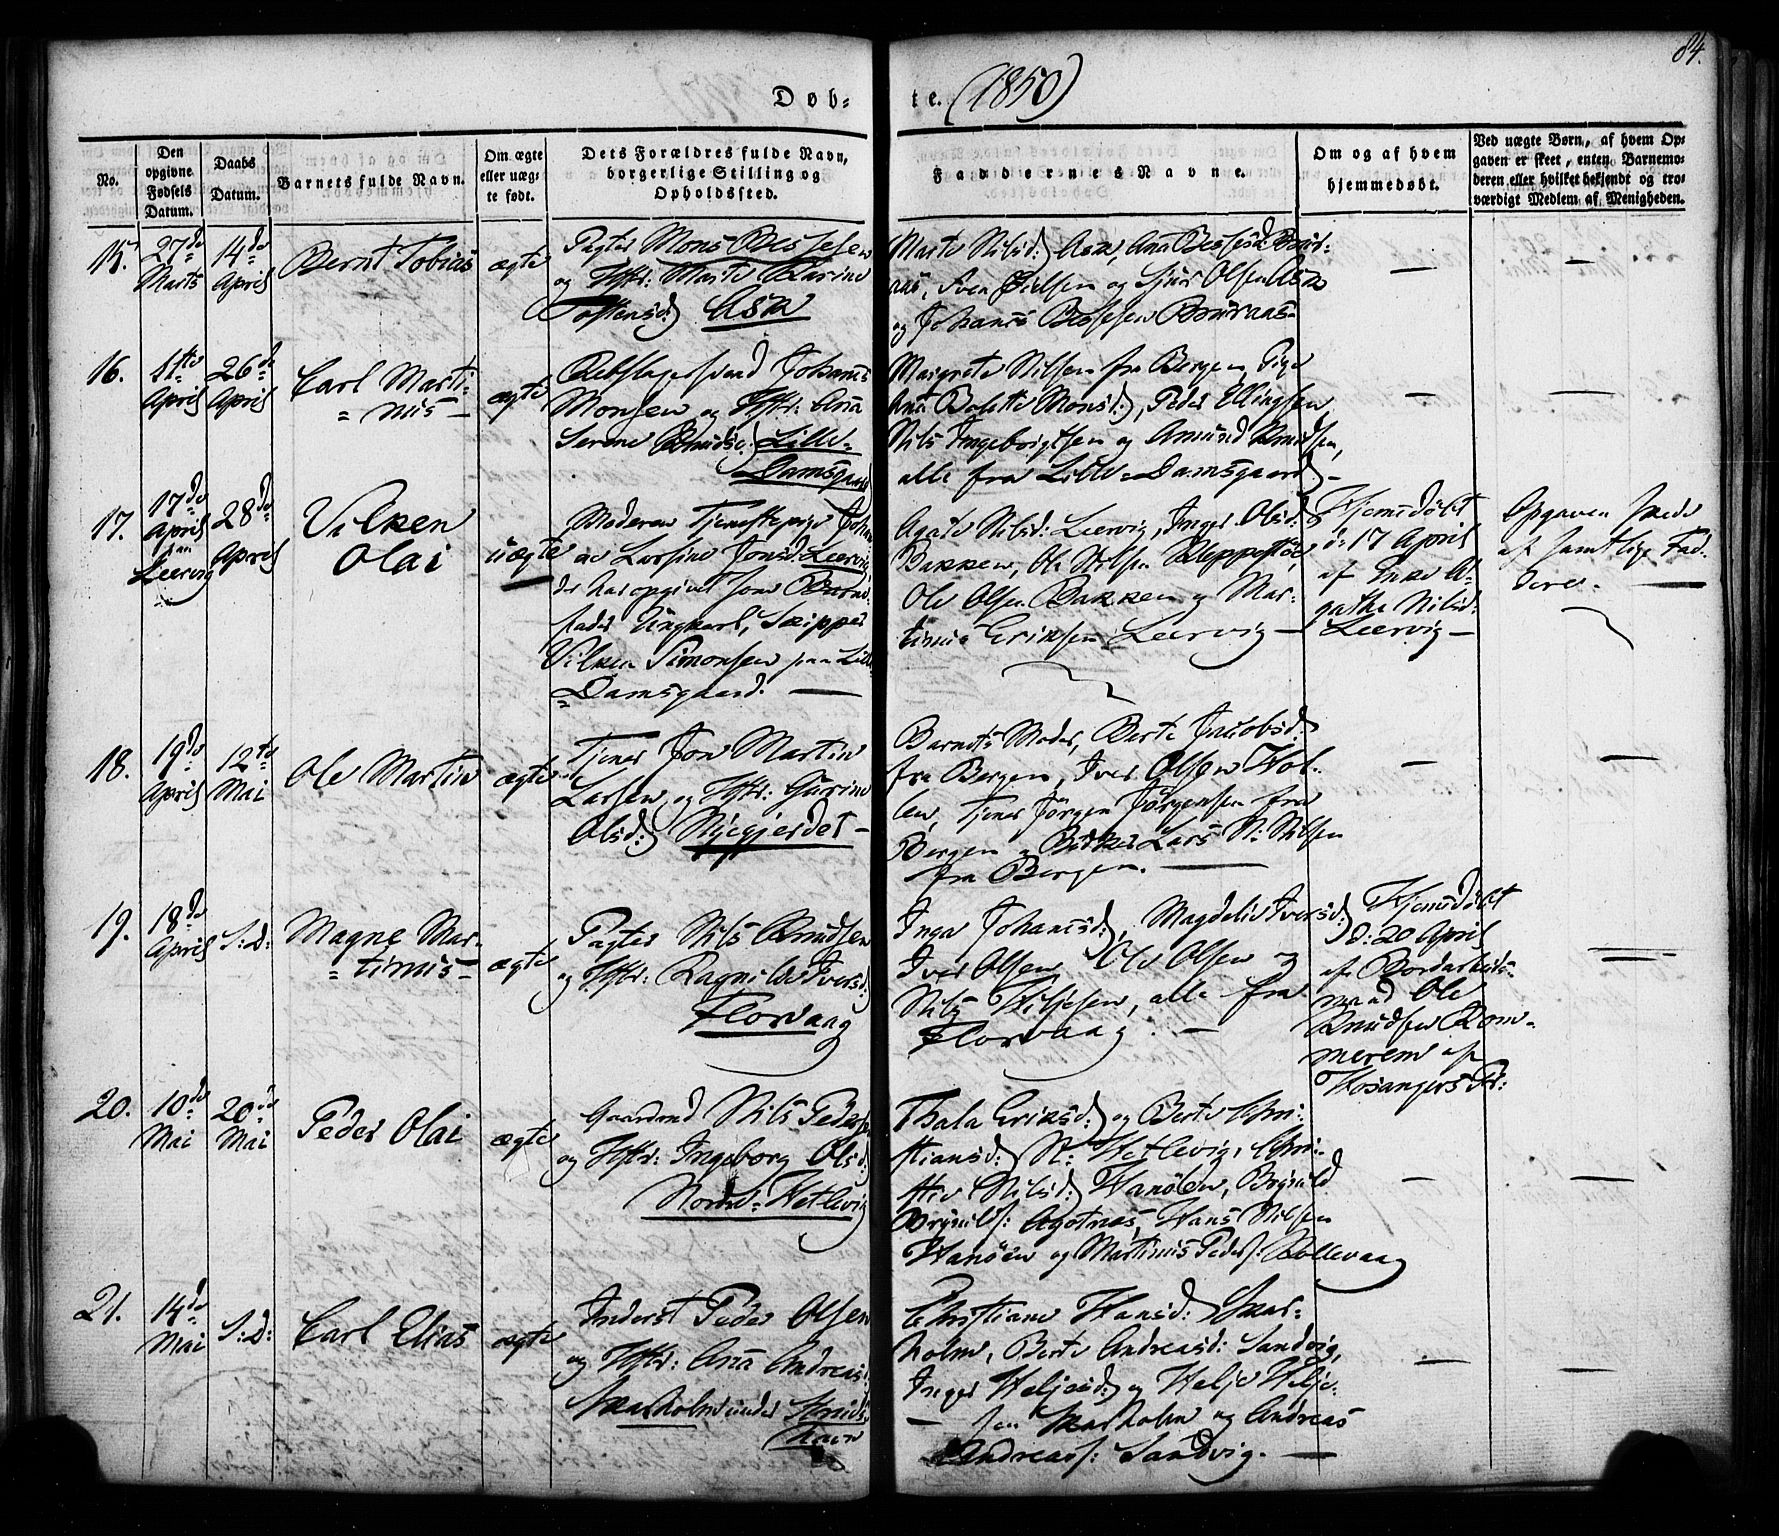 84.
Døb-
te. (1850)
No.
Den
opgivne
Fødsels
Datum.
Daabs
Datum.
Barnets fulde Navn.
Om ægte
eller uæg-
te født.
Dets Forældres fulde Navn,
borgerlige Stilling og
Opholdssted.
Faddernes Navne.
Om og af hvem
hjemmedøbt.
Ved uægte Børn, af hvem Op-
gaven er skeet, enten Barnemo-
deren eller hvilket bekjendt og tro-
værdigt Medlem af Menigheden.
15.
27de
Marts
14de
April
Bernt Tobias
ægte
Pagter Mons Bessesen
og Hstr: Marte Karine
Toftensd: Ask
Marte Nilsd: Ask, Ana Bessesd: Bour-
aas, Sven Nielsen og Sjur Olsen Ask
og Johanes Bessesen Bouraas-
—
—
16.
1ste
April
26de
April
Carl Marti-
= nus -
ægte
Rebslagersvend Johanes
Monsen og Hstr: Ana
Serene Knudsd: Lille-
Damsgaard
Margrete Nilsen fra Bergen, Pige
Ana Bolette Monsd:, Peder Ellingsen
Nils Ingebrigtsen og Amund Knudsen,
alle fra Lille Damsgaard -
—
—
17.
17de
April
paa
Leervig
28de
April
Vilken
Olai
uægte
Moderen Tjenestepige Johan
ne Larsine Jonsd: Leervig
der har opgivet som Barne-
fader Ungkarl, Skipper
Vilken Simonsen paa Lille
= Damsgaard. —
Agate Nilsd: Leervig, Inger Olsd:
Bakken, Ole Nilsen Kleppestøe,
Ole Olsen Bakken og Mar-
tinus Eriksen Leervig -
Hjemdøbt
d: 17 April
af Enke A-
gatha Nilsd:
Leervig -
Opgaven skede
af samtlige Fad-
dere. —
18.
19de
April
12te
Mai
Ole Martin
ægte
Tjener Jon Martin
Larsen og Hstr: Gurine
Olsd: Nyegjerdet -
Barnets Moder, Berte Jacobsd:
fra Bergen, Iver Olsen Hol-
len, Tjener Jørgen Jørgensen fra
Bergen og Bødker Lars N: Nilsen
fra Bergen. —
—
—
19.
18de
April
S: D:
Magne Mar-
= tinus -
ægte
Pagter Nils Knudsen
og Hstr: Ragnilde Iversd:
Florvaag
Inga Johanesd:, Magdeli Iversd:
Iver Olsen, Ole Olsen og
Nils Hiljesen, alle fra
Florvaag. -
Hjemdøbt
d: 20 April
af Bordarbeids-
mand Ole
Knudsen Rom-
merem af
Hosangers Pr:
20.
10de
Mai
20de
Mai
Peder Olai
ægte
Gaardmd Nils Pedersen
og Hstr: Ingeborg Olsd:
Nordre Hetlevig
Thala Eriksd: og Berte Chri-
stiansd: N: Hetlevig, Chri-
stie Nilsd: Hanøen, Brynild
Brynilds: Agotnes, Hans Nilsen
Hanøen og Martinus Peders: Kollevaag
—
—
21.
14de
Mai
S: D:
Carl Elias
ægte
Inderst Peder Olsen
og Hstr: Ana Andreasd:
Skarholm under
Havn
Christiane Hansd: Skar-
holm, Berte Andreasd: Sandvig,
Inger Heljesd: og Helje Helje-
- sen Skarholm og Andreas
Andreass: Sandvig. —
—
—